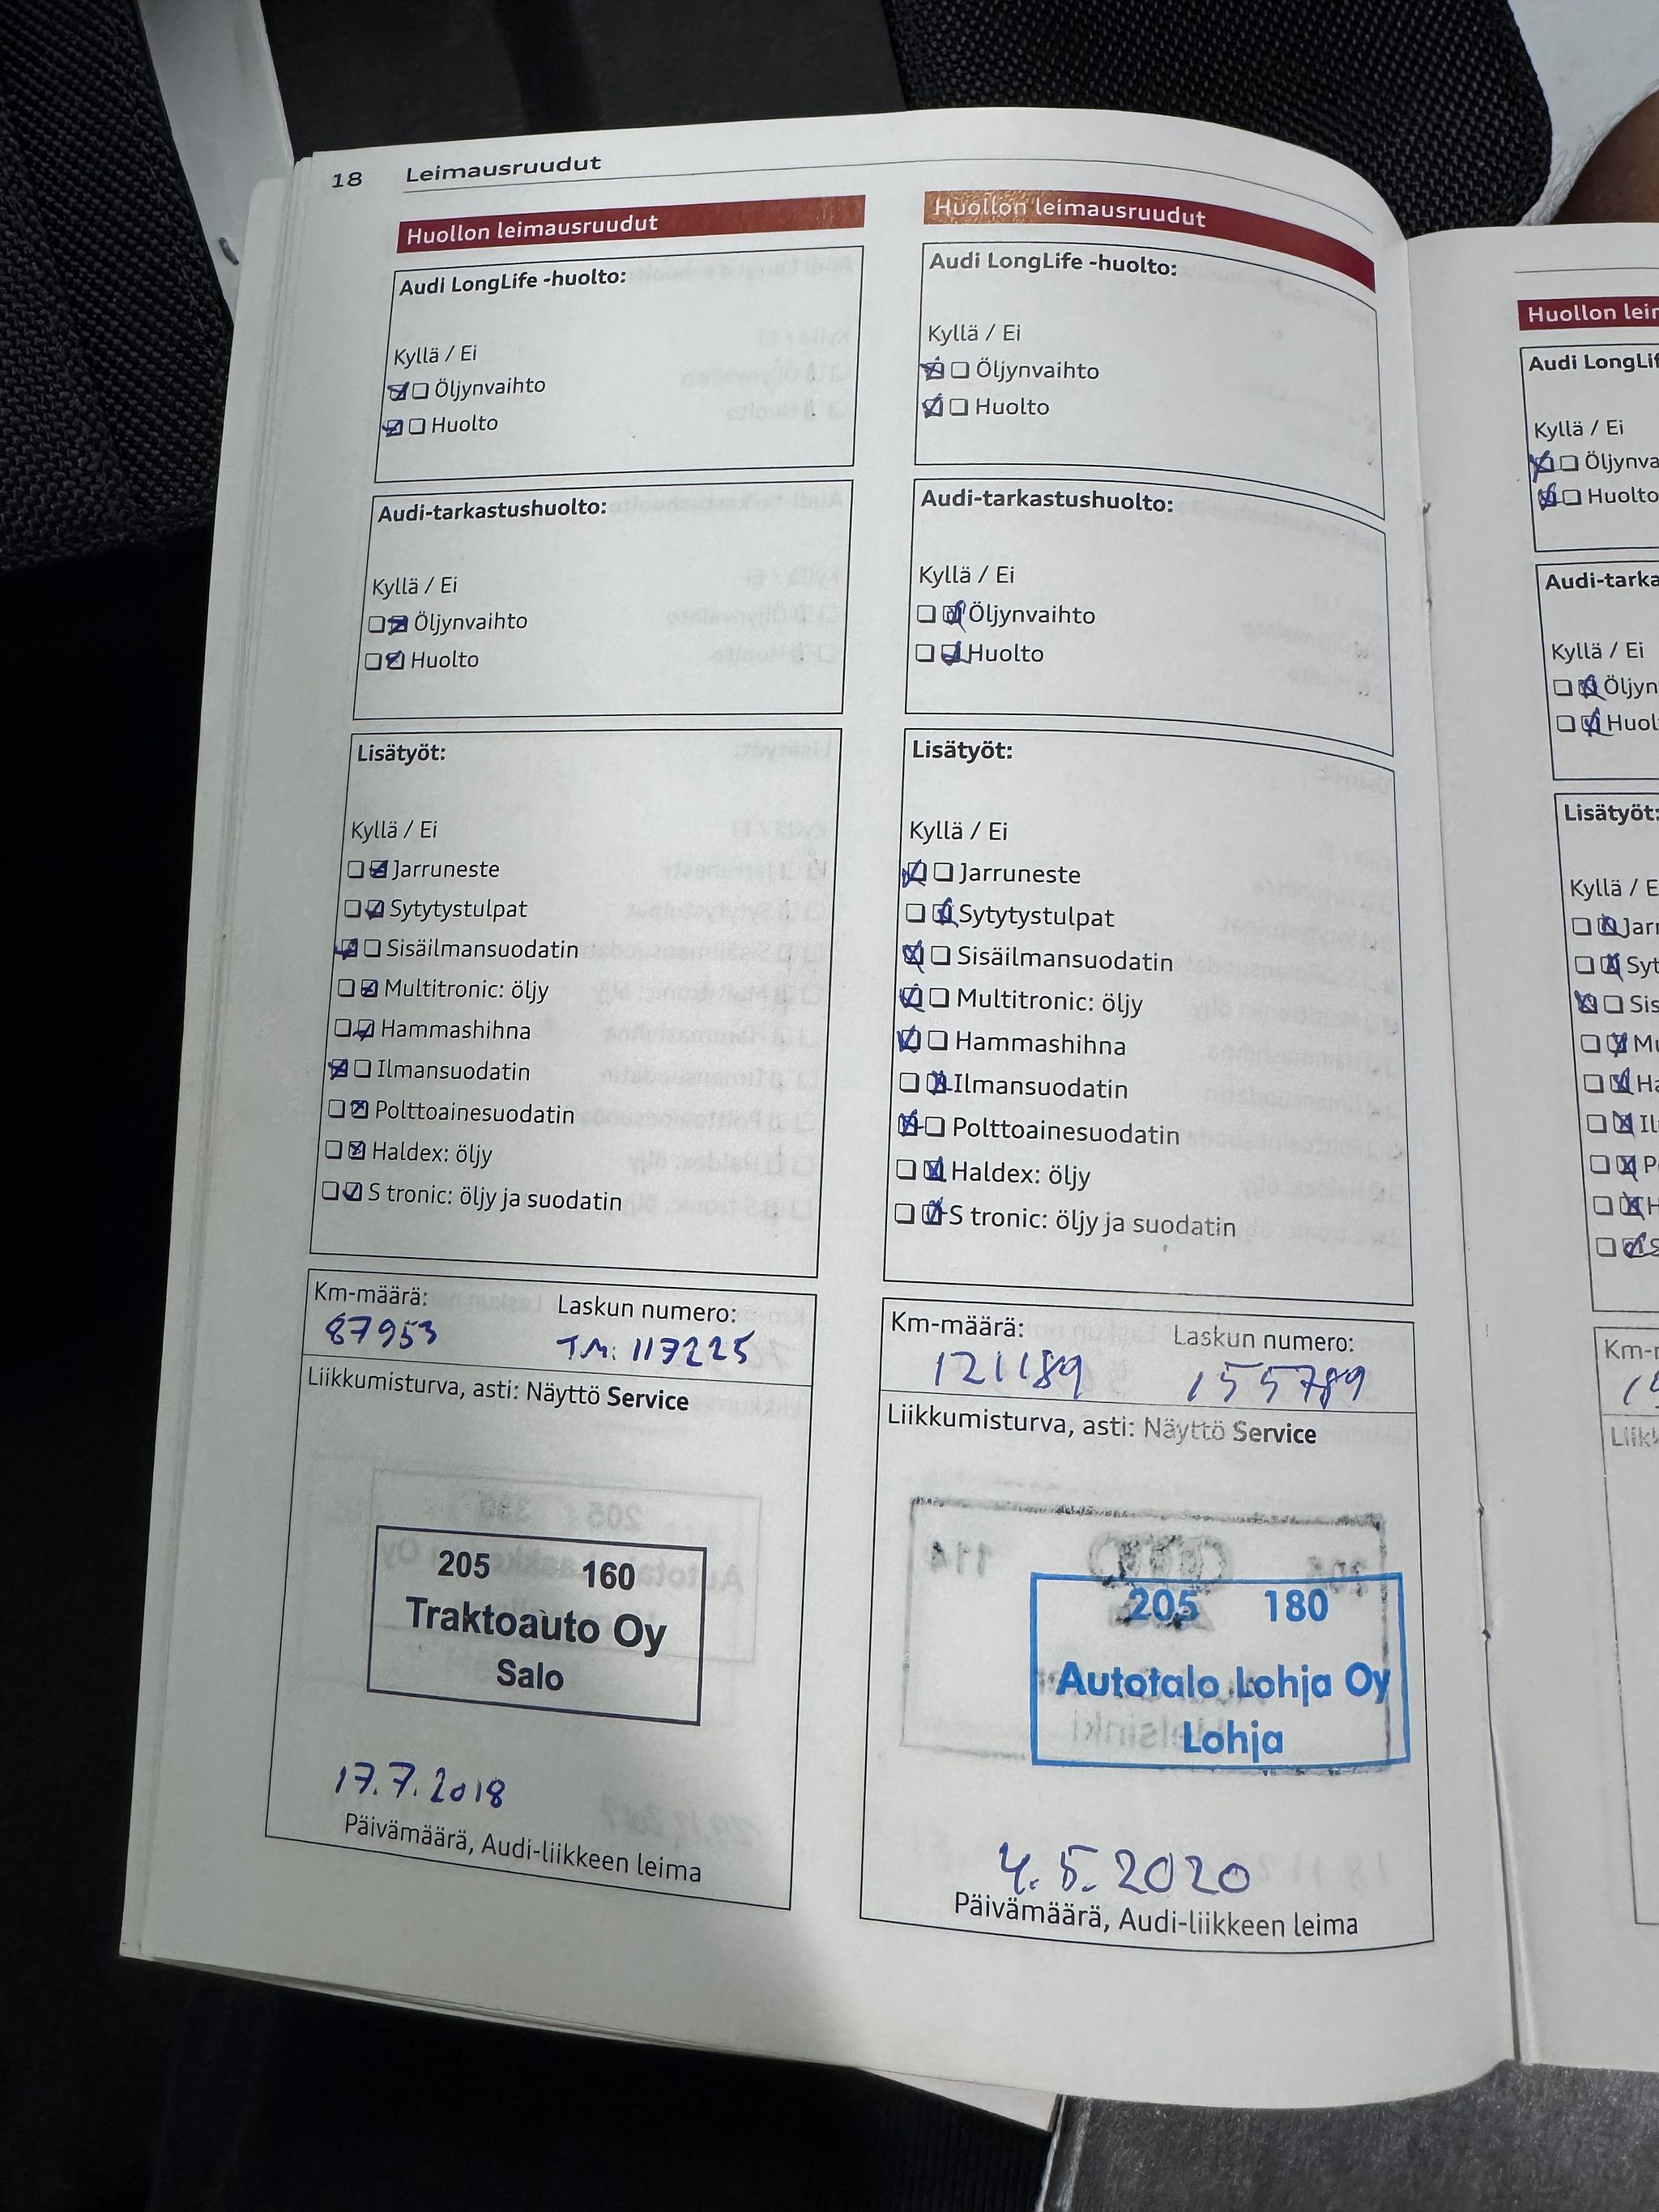 18 Leimausruudut
Huollon leimausruudut
Audi LongLife -huolto:
Kyllä / Ei
Öljynvaihto
Huolto
Audi-tarkastushuolto:
Kyllä / Ei
Öljynvaihto
Huolto
Lisätyöt:
Kyllä / Ei
Jarruneste
Sytytystulpat
Sisäilmansuodatin
Multitronic: öljy
Hammashihna
Ilmansuodatin
Polttoainesuodatin
Haldex: öljy
S tronic: öljy ja suodatin
Km-määrä: Laskun numero:
87953 TM: 117225
Liikkumisturva, asti: Näyttö Service
205 160
Traktoauto Oy
Salo
17.7.2018
Päivämäärä, Audi-liikkeen leima
Huollon leimausruudut
Audi LongLife -huolto:
Kyllä / Ei
Öljynvaihto
Huolto
Audi-tarkastushuolto:
Kyllä / Ei
Öljynvaihto
Huolto
Lisätyöt:
Kyllä / Ei
Jarruneste
Sytytystulpat
Sisäilmansuodatin
Multitronic: öljy
Hammashihna
Ilmansuodatin
Polttoainesuodatin
Haldex: öljy
S tronic: öljy ja suodatin
Km-määrä: Laskun numero:
121189 155789
Liikkumisturva, asti: Näyttö Service
205 180
Autotalo Lohja Oy
Lohja
4.5.2020
Päivämäärä, Audi-liikkeen leima
Huollon
Kyllä / Ei
Huolto
Kyllä / Ei
Lisätyöt:
Kyllä /